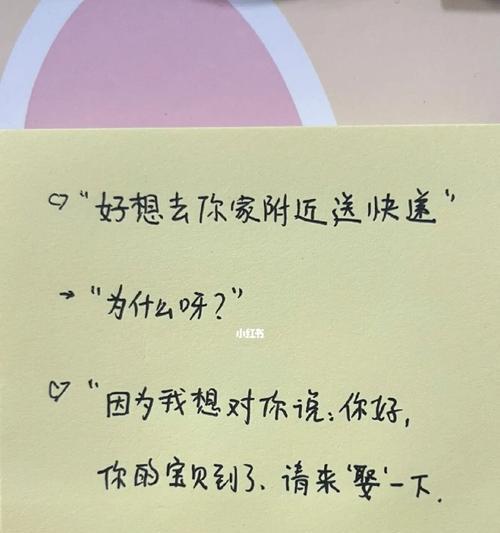 ♡“好想去你家附近送快递”
→“为什么呀?”
小红书
♡“因为我想对你说:你好,
你的宝贝到了、请来‘娶’一下.